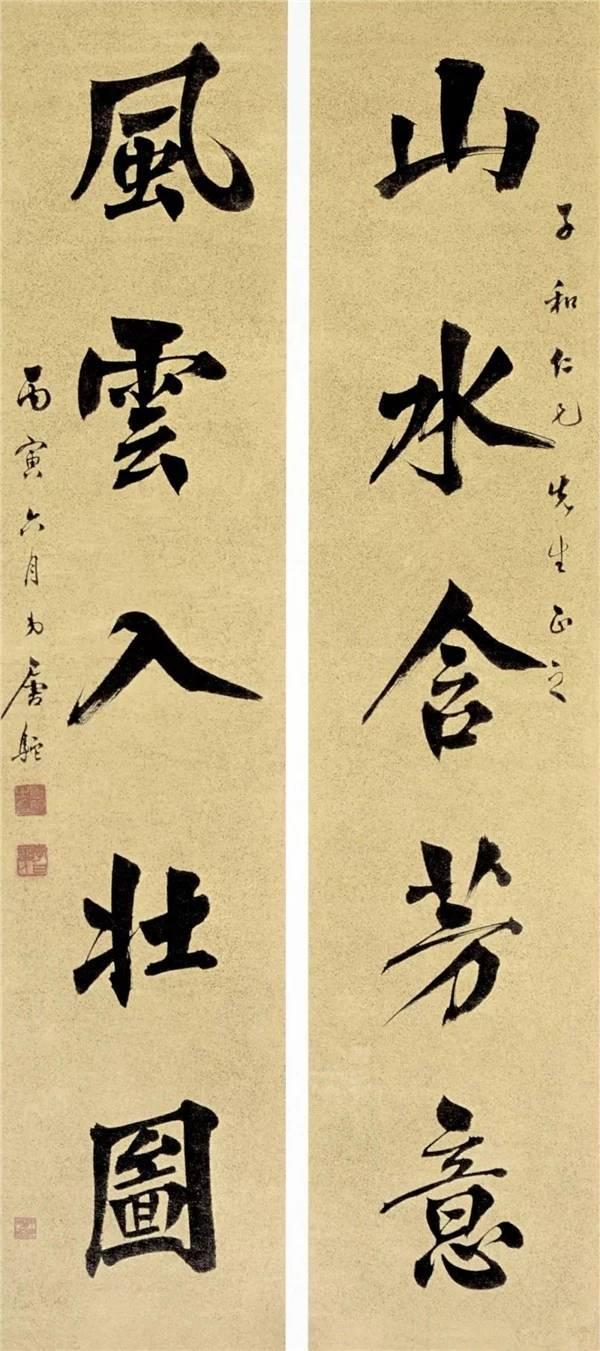 山水含芳意
子和仁兄先生正之
風雲入壯圖
丙寅六月弟唐駝